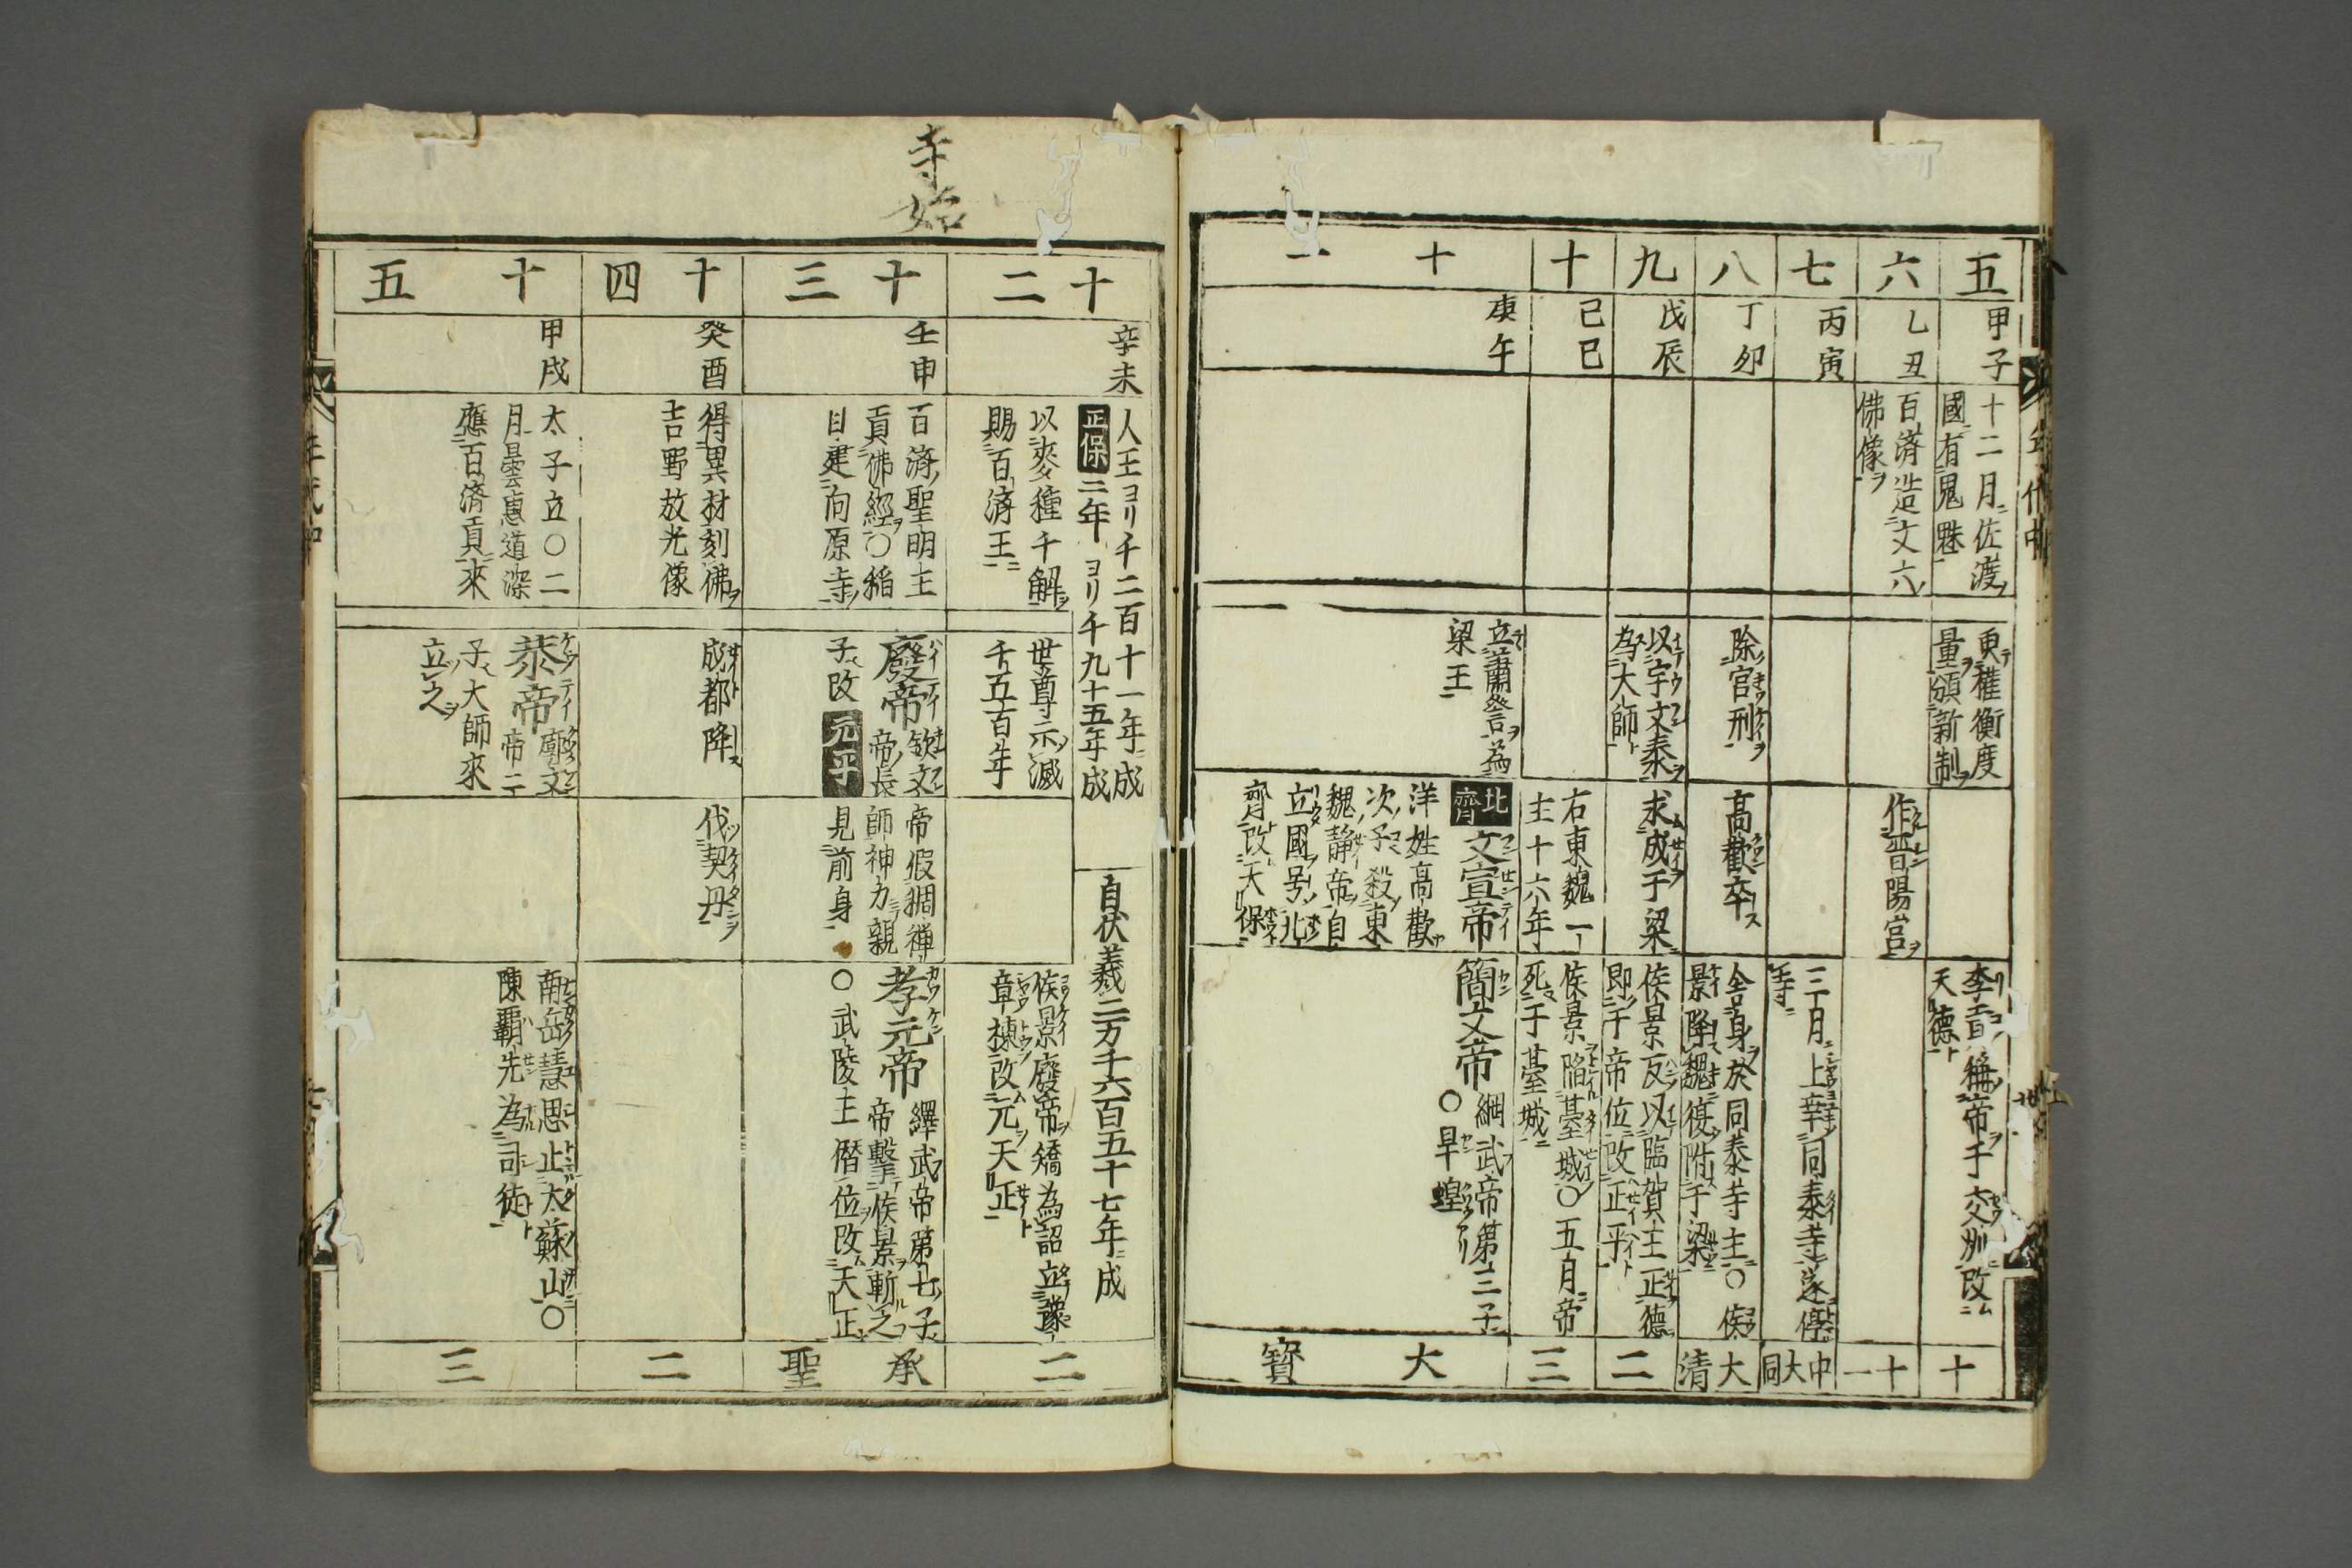 五
甲子
十二月佐渡ノ
國ニ有鬼魅
更テ權衡度
量ヲ頒新制ヲ
李賁稱帝于交州改ム
天德ト
十
六
乙丑
百濟造丈六ノ
佛像ヲ
作晋陽宮ヲ
十一
七
丙寅
三月上幸同泰寺遂停
寺ニ
中大同
八
丁卯
除宮刑ヲ
高歡卒ス
舍身ヲ於同泰寺主○侯
景降魏復附于梁ニ
大清
九
戊辰
以宇文泰ヲ
為大師ト
求成于梁ニ
侯景反以臨賀王正德
即于帝位改正平ト
二
十
己巳
右東魏一
主十六年
侯景陷臺城○五月帝
死于臺城ニ
三
十一
庚午
立蕭詧ヲ為
梁王
北齊 文宣帝
洋姓高歡
次ノ子殺東
魏静帝ヲ自
立國号ヲ北
齊ト改天保
簡文帝 綱武帝第三子
○早蝗
大寶
年代中
寺始
十二
辛未
人王ヨリ千二百十一年ニ成
正保二年ヨリ千九十五年成
自伏羲二万千六百五十七年ニ成
以麥種千斛ヲ
賜百濟王ニ
世尊示滅
千五百年
侯景廢帝ヲ矯為詔立豫
章棟改元天正ト
二
十三
壬申
百濟ノ聖明王
貢佛經ヲ○稻
目建向原寺ヲ
廢帝 欽文
帝ノ長
子改元平
帝假稠禪
師神力親
見前身
孝元帝 繹武帝第七ノ子
帝擊侯景ヲ斬之
○武陵王僭位ヲ改天正
承聖
十四
癸酉
得異材刻佛ヲ
吉野放光像
成都降ス
伐契丹ヲ
二
十五
甲戌
太子立○二
月曇惠道深
應百濟貢來
恭帝 廓文
帝ニ
子大師來
立之ヲ
南岳慧思止大蘇山ニ○
陳覇先為司徒ト
三
年代中